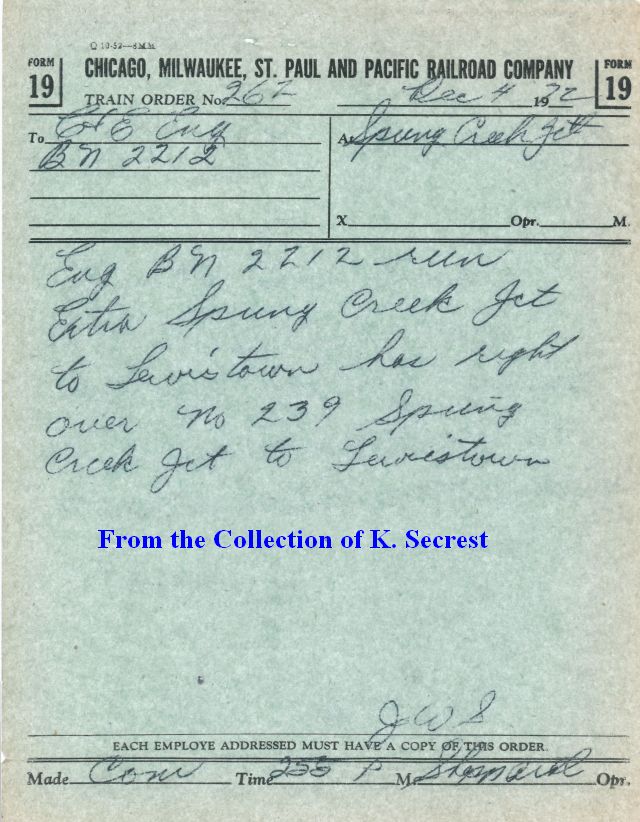 Q 10-52—8MM
FORM 19
CHICAGO, MILWAUKEE, ST. PAUL AND PACIFIC RAILROAD COMPANY
FORM 19
TRAIN ORDER No. 262 Dec 4 1972
To C+E Eng
BN 2212
At Spring Creek Jct
X Opr. M.
Eng BN 2212 run
Extra Spring Creek Jct
to Lewistown has right
over No 239 Spring
Creek Jct to Lewistown
From the Collection of K. Secrest
JWS
EACH EMPLOYE ADDRESSED MUST HAVE A COPY OF THIS ORDER.
Made Com Time 255 P M. Sheppard Opr.